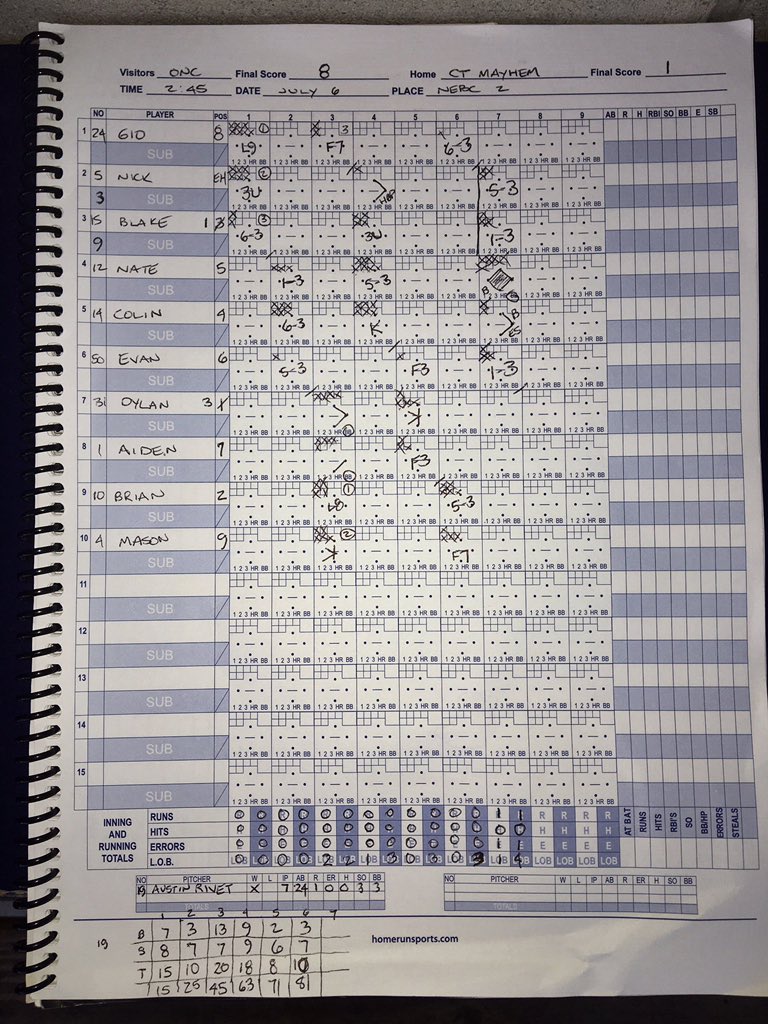 Visitors ONC Final Score 8 Home CT MAYHEM Final Score 1
TIME 2:45 DATE JULY 6 PLACE NEBC 2
NO PLAYER POS 1 2 3 4 5 6 7 8 9 AB R H RBI SO BB E SB
1 24 GIO 8 L9 F7 6-3
SUB
2 5 NICK EH 3U HBP 5-3
3
3 15 BLAKE 1 6-3 3U 1-3
9 SUB
4 12 NATE 5 1-3 5-3
SUB
5 14 COLIN 4 6-3 K
SUB
6 50 EVAN 6 5-3 F3 1-3
SUB
7 31 DYLAN 3 BB K
SUB
8 1 AIDEN 7 BB F3
SUB
9 10 BRIAN 2 L8 5-3
SUB
10 4 MASON 9 K F7
SUB
11
SUB
12
SUB
13
SUB
14
SUB
15
SUB
INNING AND RUNNING TOTALS
RUNS 0 0 0 0 0 0 0 0 0 0 0 0 1 1 R R R R
HITS 0 0 0 0 0 0 0 0 0 0 0 0 0 0 H H H H
ERRORS E E E E
L.O.B. LOB LOB LOB LOB
AT BAT RUNS HITS RBI'S SO BB/HP ERRORS STEALS
NO PITCHER W L IP AB R ER H SO BB
19 AUSTIN RIVET X 7 24 1 0 0 3 3
TOTALS
NO PITCHER W L IP AB R ER H SO BB
TOTALS
1 2 3 4 5 6 7
19 B 7 3 13 9 2 3
S 8 7 7 9 6 7
T 15 10 20 18 8 10
15 25 45 63 71 81
homerunsports.com